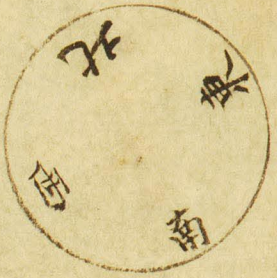 北
東
南
西